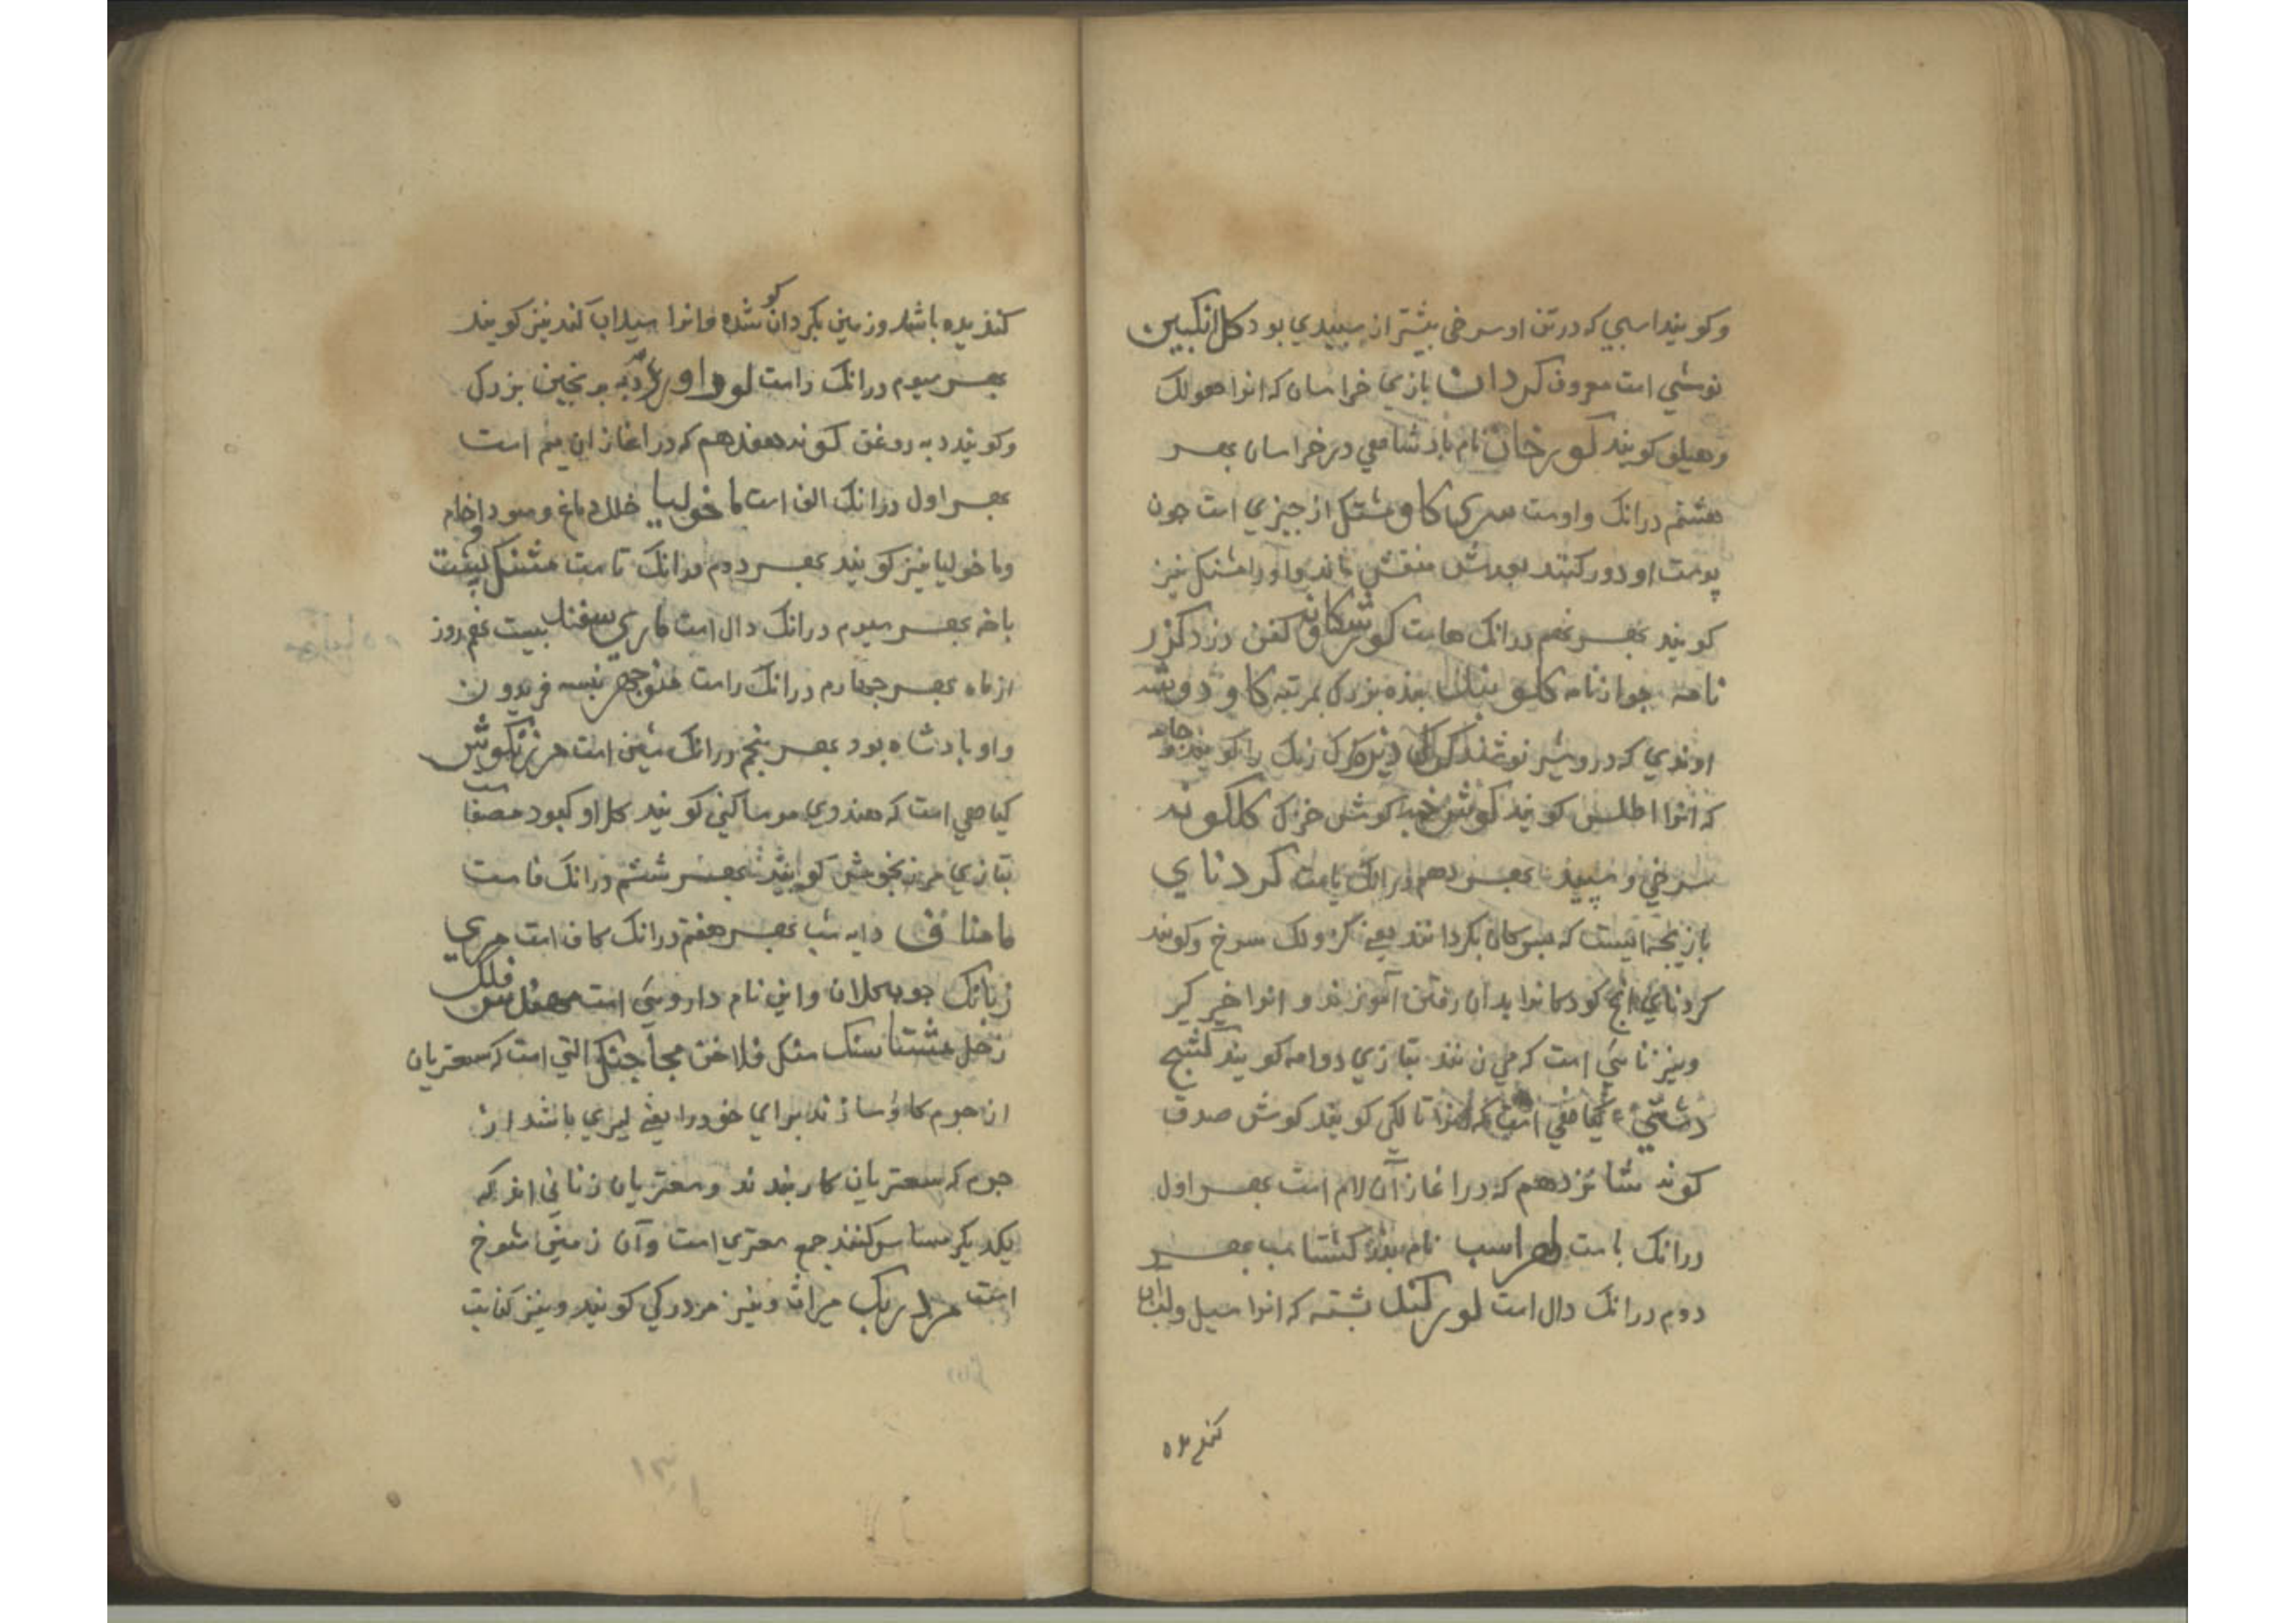 وکویند اسبی که در تن او سرخی بیشتر از سپیدی بود کل انکبین
نوشی است معروف کردان بازی خراسان که انرا هولک
و هیلق کویند کورخان نام بادشاهی در خراسان بهر
هشتم درانک واوست سری کاو مشتکل از چیزی است چون
پوست او دور کنند بعدش منقش ماند واو را مشنکل نیز
کویند بهر نهم درانک هاست کورشکافه کفن دزد کزر
نامه جواز نامه کلو بنده بنده بزرک بمرتبه کاو دوشه
اوندی که درو شیر نوشند رنک را کویند
که انرا اطلس کویند کوش خبه کوش خزک کلکونه
سرخی و سپید بهر دهم درانک یاست کردنای
بازیچه ایست که بسوکان بکردانند یعنی کرولک سرخ وکویند
کردنای انچ کودکانرا بدان رفتن آموزند و انرا خیر کیر
ونیز نایی است که می زنند بتازی دوامه کویند کشنج
دشتی کیاهی است که انرا تالکی کویند کوش صدف
کونه شانزدهم که در اغاز آن لام است بهر اول
درانک باست لهراسب نام پدر کشتاسب بهر
دوم درانک دال است لورکند پشته که انرا سیل ولبان
کندیده
کندیده باشد و زمین بکردان کو شده وانرا سیلاب کند نیز کویند
بهر سیوم درانک راست لوراور دبه برنجین بزرک
وکویند دبه روغن کونه هفدهم که در اغاز ان میم است
بهر اول درانک الف است ماخولیا خلل دماغ و سودا خام
وما خولیا نیز کویند بهر دوم درانک تاست مشنکل پشت
باخه بهر سیوم درانک دال است ماری سفند بیست نهم روز
از ماه بهر چهارم درانک راست منوچهر نبسه فریدون
واو بادشاه بود بهر پنجم درانک شین است مرزنکوش
کیاهی است که هندوی موساکنی کویند کل او کبود مصفا ست
بتازی مرزنجوش کویند بهر ششم درانک فاست
مامناف دایه شب بهر هفتم درانک کاف است مرری
زنانک چوبه کلان واین نام داروئی است مهندس فلک
زحل مشتا سنک مشکل فلاخن مجاجنک التی است که سعتریان
از چرم کاو سازند برای خود را یعنی لیری باشد از
چرم که سعتریان کار بندند و سعتریان زنانی اند که
یکدیکر مساس کنند جمع سعتری است وآن زمینی شوخ
است مرد ریک میراث ونیز مردرکی کویند ونیز کفایت